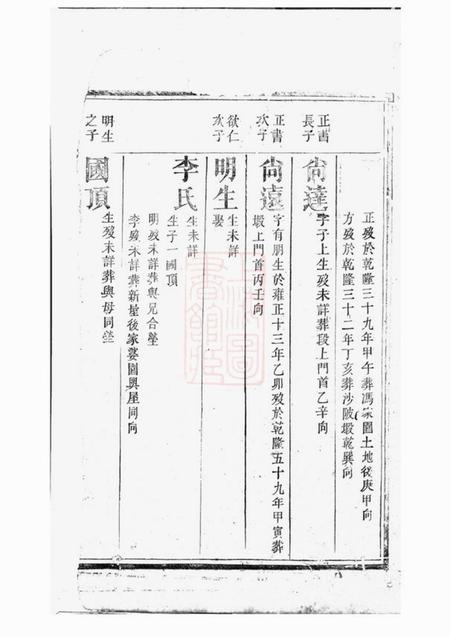 正歿於乾隆三十九年甲午葬馮家園土地後庚甲向
方歿於乾隆三十二年丁亥葬沙陂塅乾巽向
正書長子
尙達
字子上生歿未詳葬段上門首乙辛向
正書次子
尙遠
字有朋生於雍正十三年乙卯歿於乾隆五十九年甲寅葬
塅上門首丙壬向
欲仁次子
明生
生未詳
娶
李氏
生未詳
生子一國頂
明歿未詳葬與兄合塋
李歿未詳葬新屋後家婆園與屋同向
明生之子
國頂
生歿未詳葬與母同塋